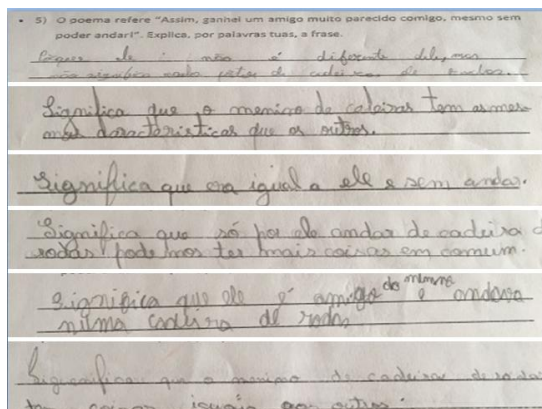 • 5) O poema refere "Assim, ganhei um amigo muito parecido comigo, mesmo sem
poder andar!". Explica, por palavras tuas, a frase.
Porque ele não é diferente dele, mas
não significa nada de cadeira de rodas.
Significa que o menino de cadeiras tem as mes-
mas características que os outros.
Significa que era igual a ele e sem andar.
Significa que só por ele andar de cadeira d
rodas podemos ter mais coisas em comum.
Significa que ele é amigo do menino e andava
numa cadeira de rodas
Significa que o menino de cadeira de roda
tem coisas iguais aos outros.